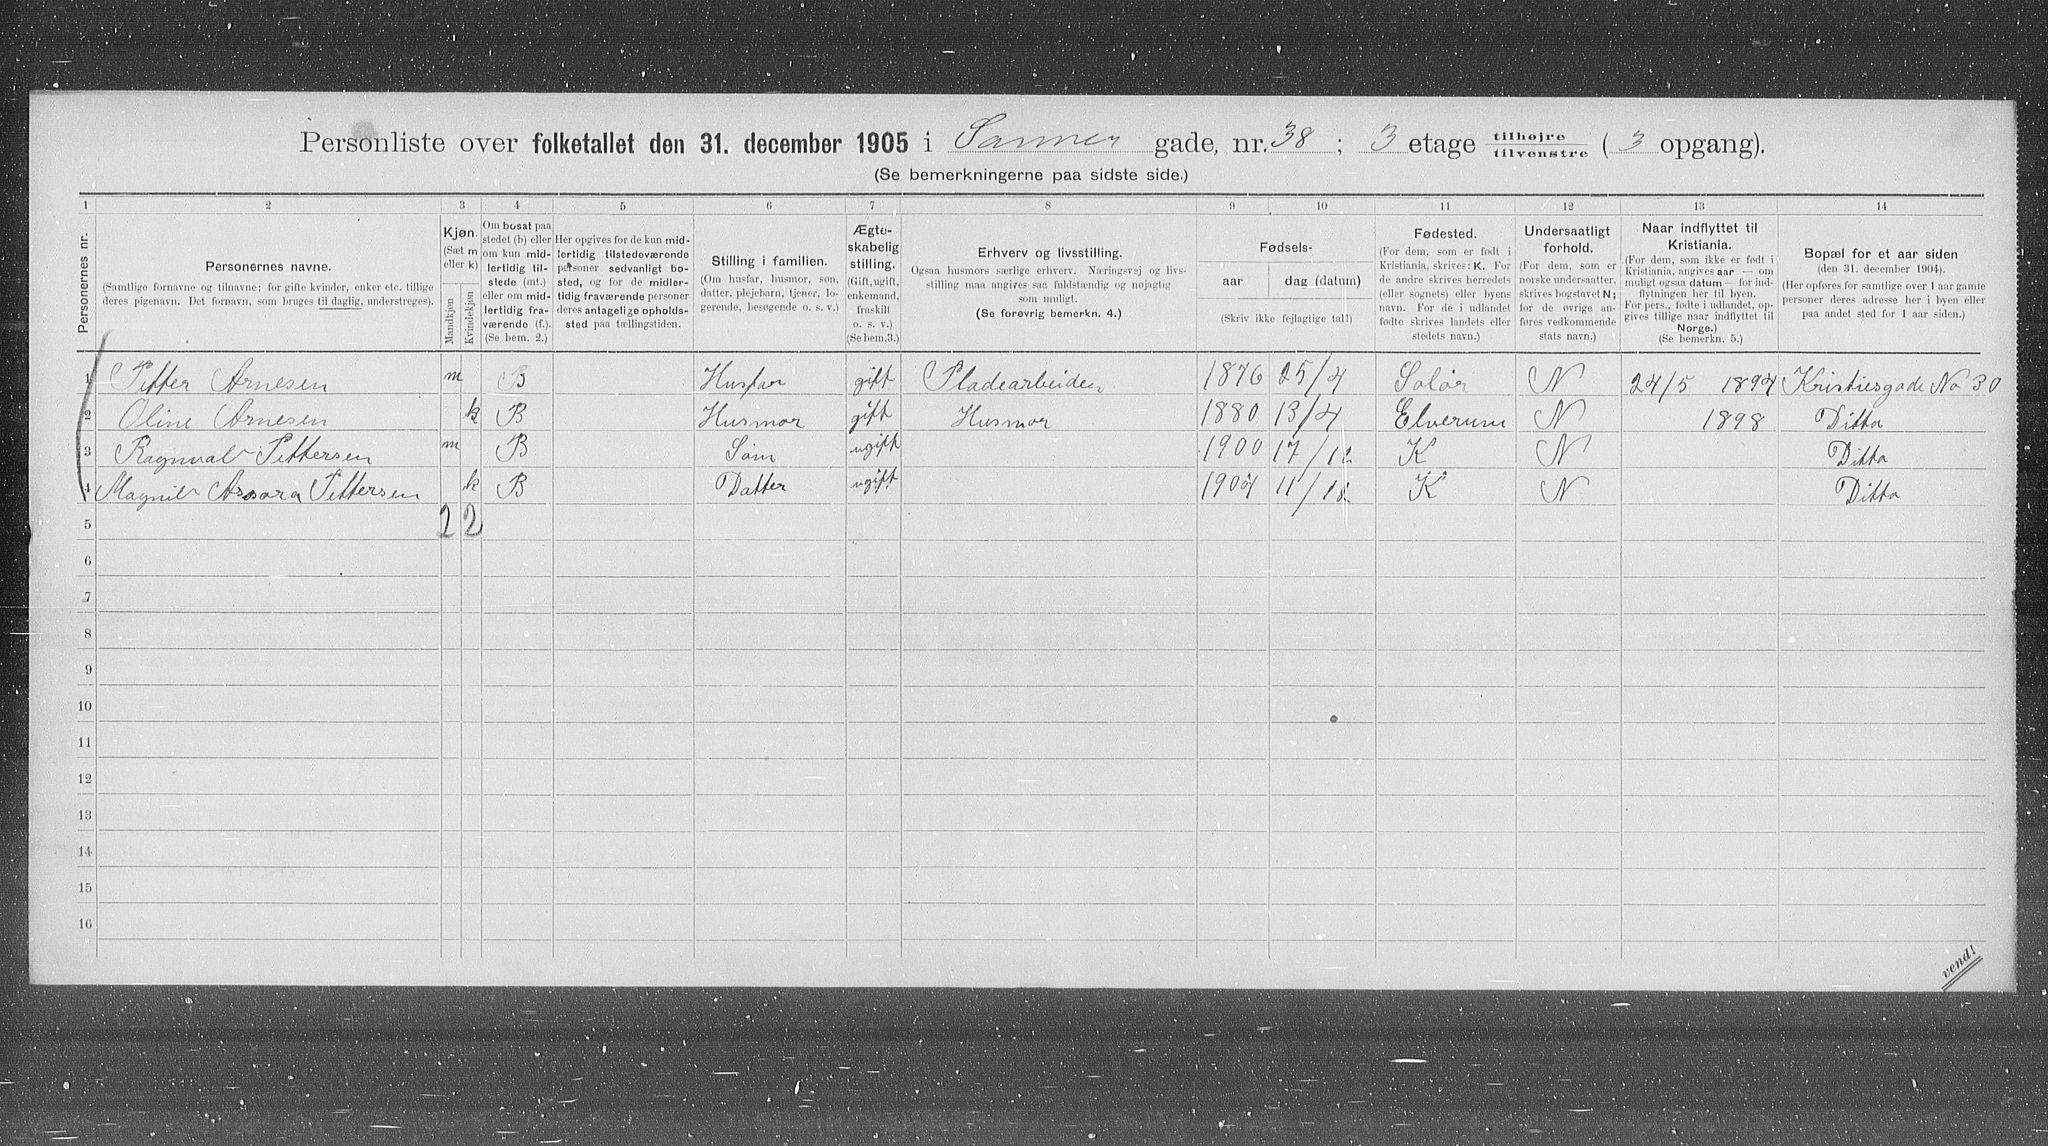 Personliste over folketallet den 31. december 1905 i Sanner gade, nr. 38 ; 3 etage tilhøjre tilvenstre ( 3 opgang).
(Se bemerkningerne paa sidste side.)
1 2 3 4 5 6 7 8 9 10 11 12 13 14
Personernes nr.
Personernes navne.
(Samtlige fornavne og tilnavne; for gifte kvinder, enker etc. tillige
deres pigenavn. Det fornavn, som bruges til daglig, understreges).
Kjøn.
(Sæt m
eller k)
Mandkjøn
Kvindekjøn
Om bosat paa
stedet (b) eller
om kun mid-
lertidig til-
stede (mt.)
eller om mid-
lertidig fra-
værende (f.).
(Se bem. 2.)
Her opgives for de kun mid-
lertidig tilstedeværende
personer sedvanligt bo-
sted, og for de midler-
tidig fraværende personer
deres antagelige opholds-
sted paa tællingstiden.
Stilling i familien.
(Om husfar, husmor, søn,
datter, plejebarn, tjener, lo-
gerende, besøgende o. s. v.)
Ægte-
skabelig
stilling.
(Gift, ugift,
enkemand,
fraskilt
o. s. v.)
(Se bem.3.)
Erhverv og livsstilling.
Ogsaa husmors særlige erhverv. Næringsvej og livs-
stilling maa angives saa fuldstændig og nøjagtig
som muligt.
(Se forøvrig bemerkn. 4.)
Fødsels-
aar
dag (datum)
(Skriv ikke fejlagtige tal!)
Fødested.
(For dem, som er født i
Kristiania, skrives: K. For
de andre skrives herredets
(eller sognets) eller byens
navn. For de i udlandet
fødte skrives landets eller
stedets navn.)
Undersaatligt
forhold.
(For dem, som er
norske undersaatter,
skrives bogstavet N;
for de øvrige an-
føres vedkommende
stats navn.)
Naar indflyttet til
Kristiania.
(For dem, som ikke er født i
Kristiania, angives aar — om
muligt ogsaa datum — for ind-
flytningen her til byen.
For pers., fødte i udlandet, op-
gives tillige naar indflyttet til
Norge.)
(Se bemerkn. 5.)
Bopæl for et aar siden
(den 31. december 1904).
(Her opføres for samtlige over 1 aar gamle
personer deres adresse her i byen eller
paa andet sted for 1 aar siden.)
1 Petter Arnesen m B Husfar gift Pladearbeider 1876 25/4 Solør N 24/5 1894 Kristiesgade No 30
2 Oline Arnesen k B Husmor gift Husmor 1880 13/4 Elverum N 1898 Ditto
3 Ragnval Pettersen m B Søn ugift 1900 17/12 K N Ditto
4 Magnil Pettersen k B Datter ugift 1904 11/12 K N Ditto
5 2 2
6
7
8
9
10
11
12
13
14
15
16
vend!